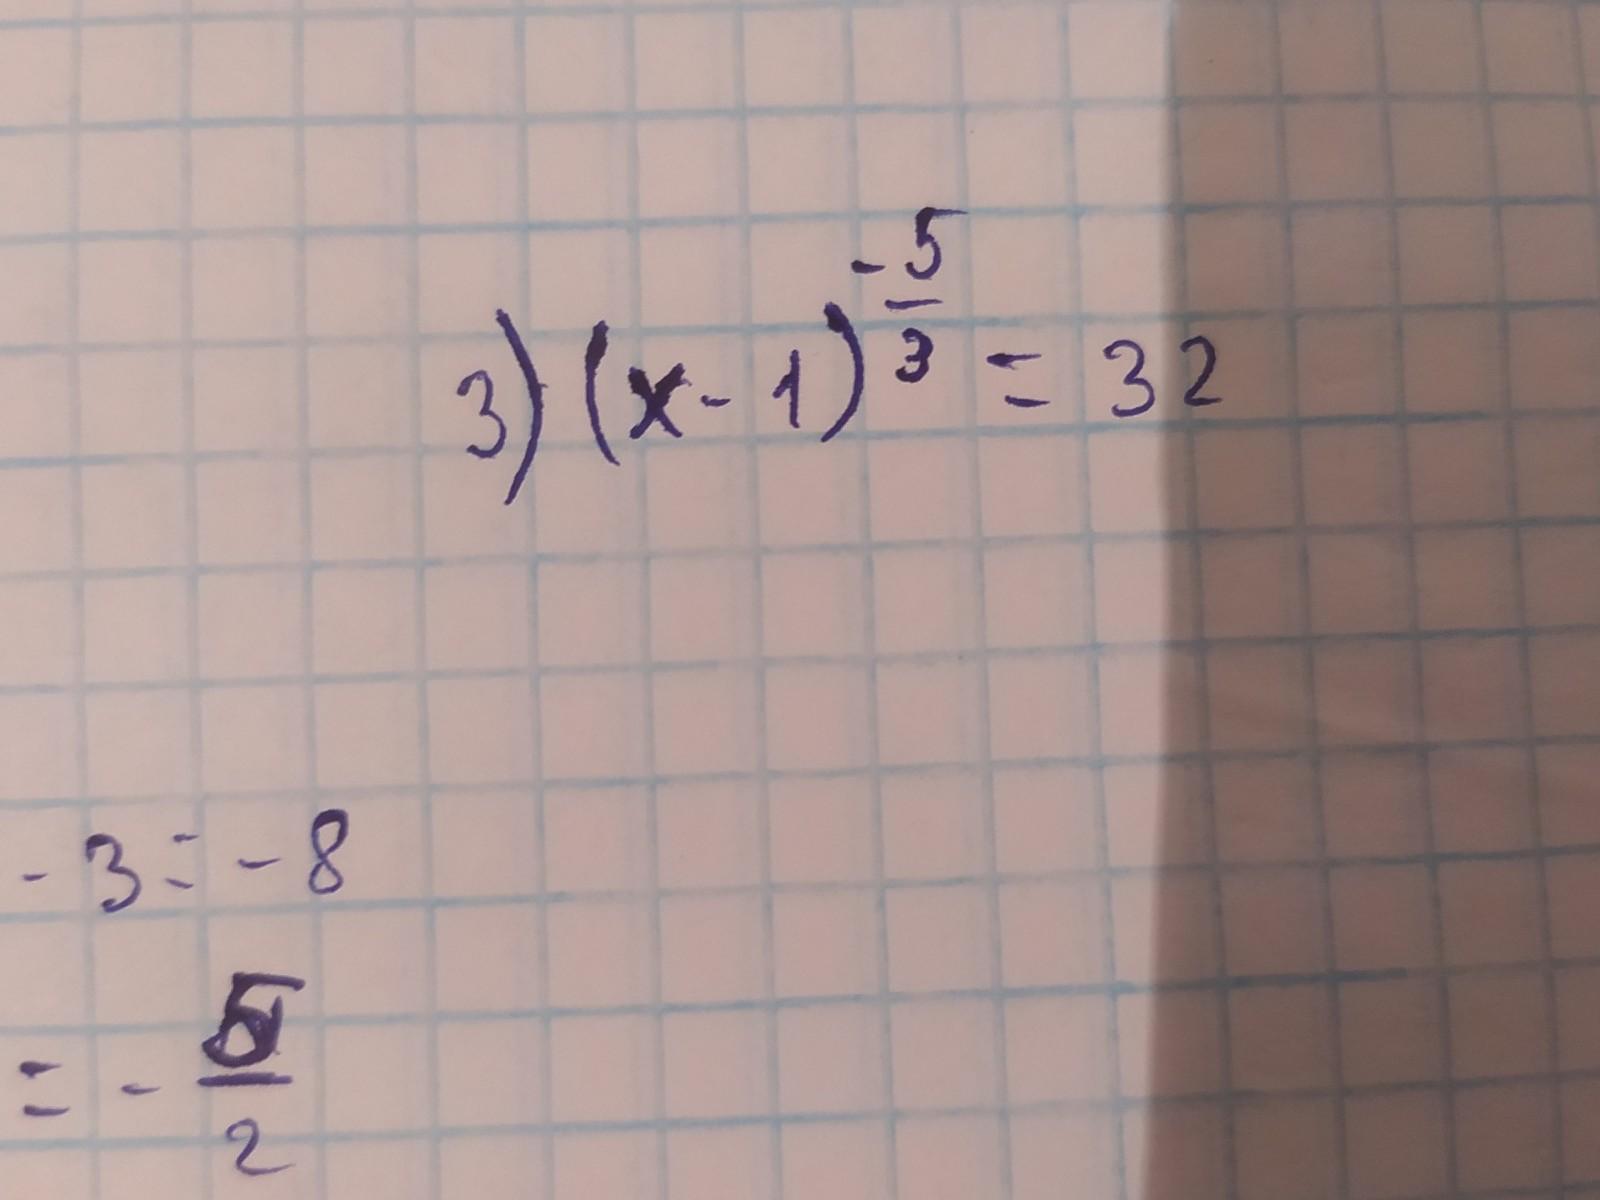 3) (x-1)^{-\frac{5}{3}} = 32
-3 = -8
= -\frac{5}{2}